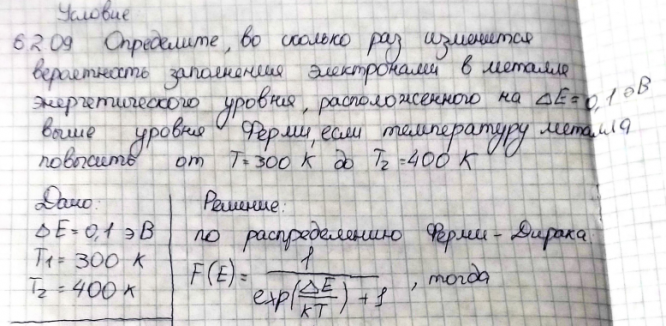 Условие
6.2.09 Определите, во сколько раз изменится
вероятность заполнения электронами в металле
энергетического уровня, расположенного на ΔE = 0,1 эВ
выше уровня Ферми, если температуру металла
повысить от T = 300 К до T₂ = 400 К
Дано:
ΔE = 0,1 эВ
T₁ = 300 К
T₂ = 400 К
Решение:
по распределению Ферми - Дирака:
F(E) = 1 / (exp(ΔE/кT) + 1), тогда